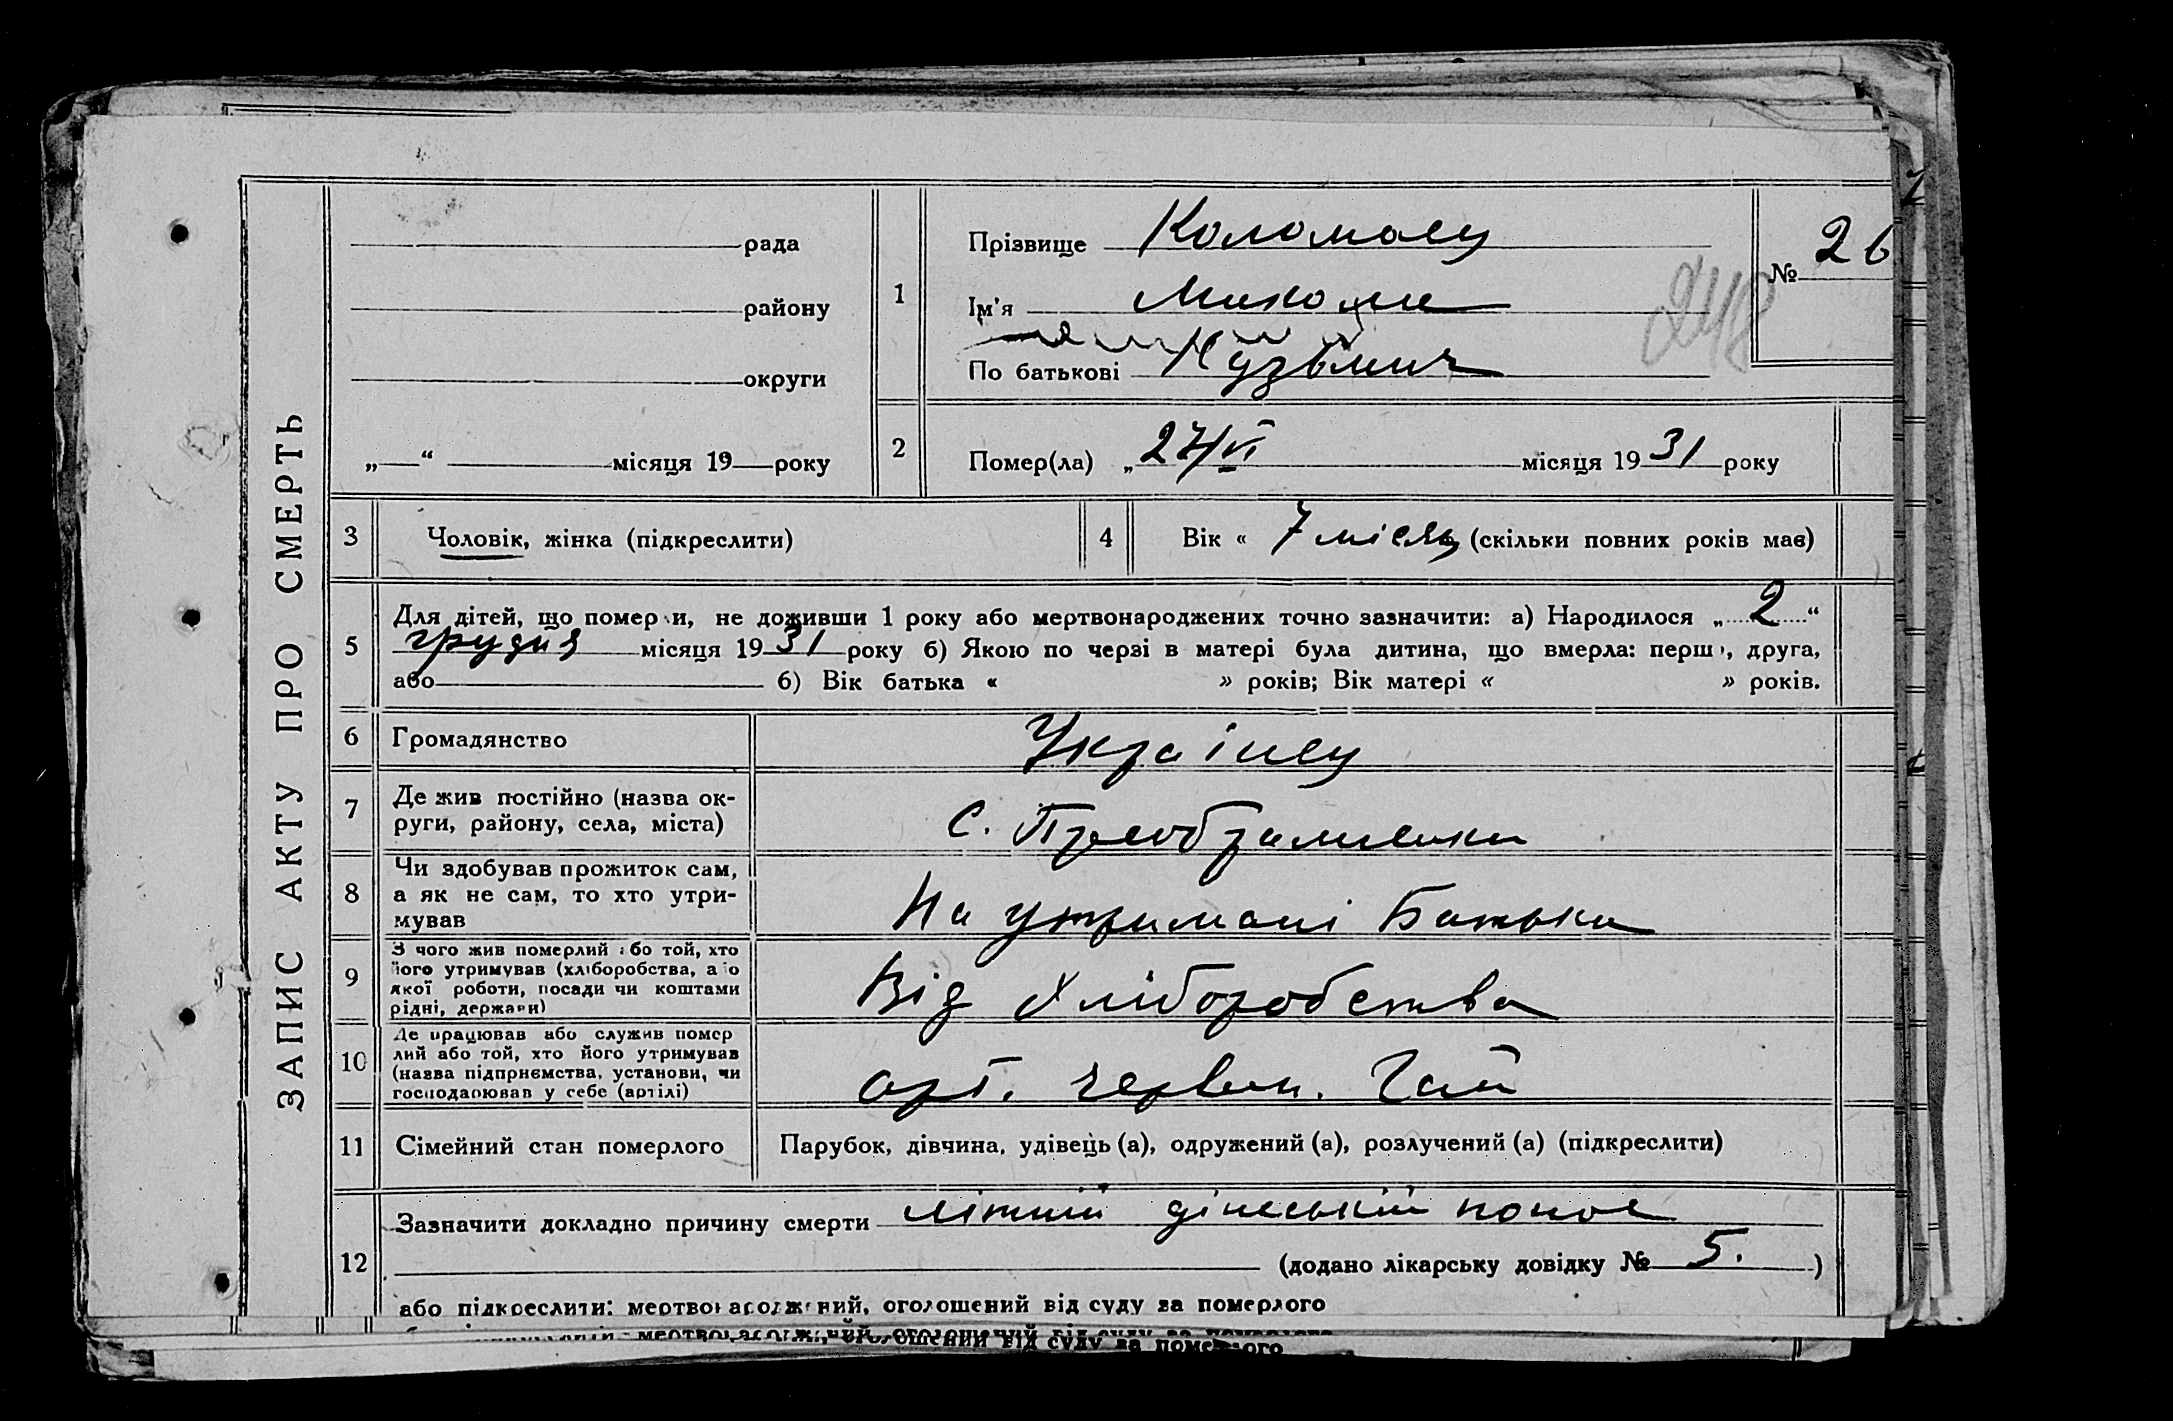 ЗАПИС АКТУ ПРО СМЕРТЬ
рада
району
округи
„ “ місяця 19 року
1
Прізвище Коломоец
Ім'я Микола
По батькові Кузьмич
№ 26
248
2
Помер(ла) „ 27/VI місяця 1931 року
3
Чоловік, жінка (підкреслити)
4
Вік « 7 місяц (скільки повних років має)
5
Для дітей, що помер и, не доживши 1 року або мертвонароджених точно зазначити: а) Народилося „ 2 “
грудня місяця 1931 року б) Якою по черзі в матері була дитина, що вмерла: перш , друга,
або б) Вік батька « » років; Вік матері « » років.
6
Громадянство
Украінец
7
Де жив постійно (назва ок-
руги, району, села, міста)
С.
8
Чи здобував прожиток сам,
а як не сам, то хто утри-
мував
На утримані Батька
9
З чого жив померлий або той, хто
його утримував (хліборобства, або
якої роботи, посади чи коштами
рідні, держави)
Від хліборобства
10
Де працював або служив помер
лий або той, хто його утримував
(назва підприємства, установи, чи
господарював у себе (артілі)
арт. червон. Гай
11
Сімейний стан померлого
Парубок, дівчина, удівець (а), одружений (а), розлучений (а) (підкреслити)
12
Зазначити докладно причину смерти літній понос
(додано лікарську довідку № 5. )
або підкреслити: мертвонароджений, оголошений від суду за померлого